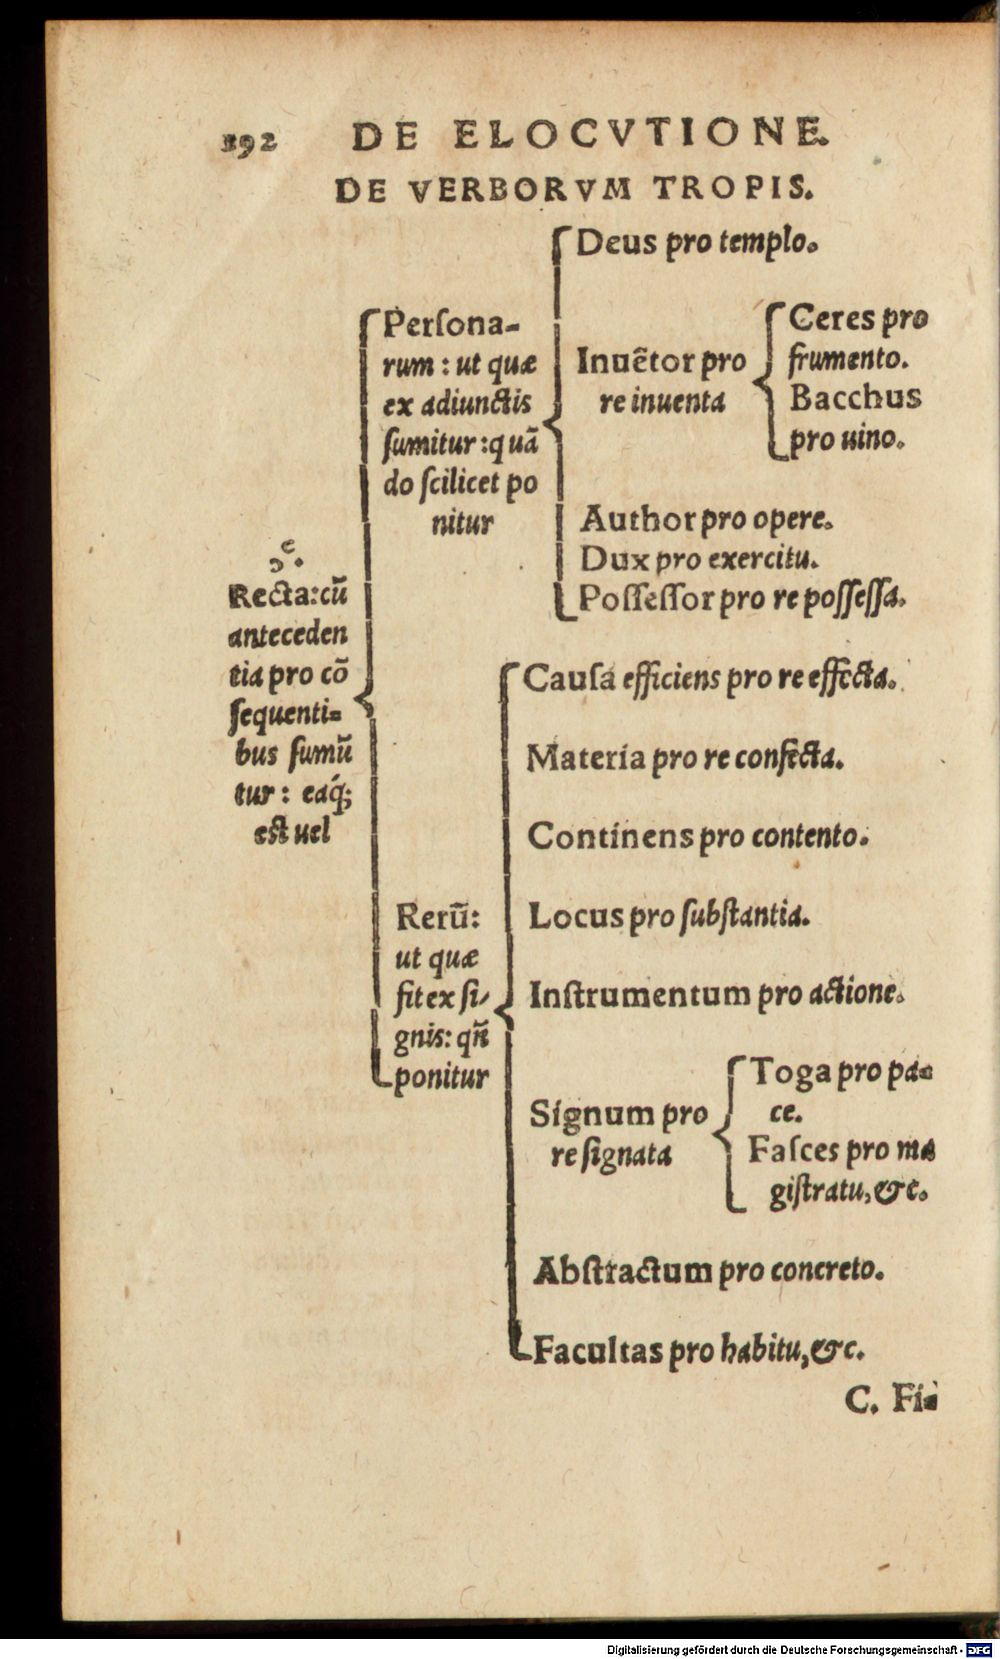 192 DE ELOCVTIONE.
DE VERBORVM TROPIS.
Recta:cũ
anteceden
tia pro cõ
ſequenti=
bus ſumũ
tur: eaq́;
est uel
Perſona-
rum : ut quæ
ex adiunctis
ſumitur :quã
do ſcilicet po
nitur
Deus pro templo.
Inuẽtor pro
re inuenta
Ceres pro
frumento.
Bacchus
pro uino.
Author pro opere.
Dux pro exercitu.
Poſſeſſor pro re poſſeſſa.
Rerũ:
ut quæ
fit ex ſi-
gnis: qñ
ponitur
Cauſa efficiens pro re effecta.
Materia pro re confecta.
Continens pro contento.
Locus pro ſubſtantia.
Inſtrumentum pro actione.
Signum pro
re ſignata
Toga pro pa=
ce.
Faſces pro ma
giſtratu, &c.
Abſtractum pro concreto.
Facultas pro habitu, &c.
C. Fi=
Digitalisierung gefördert durch die Deutsche Forschungsgemeinschaft - DFG